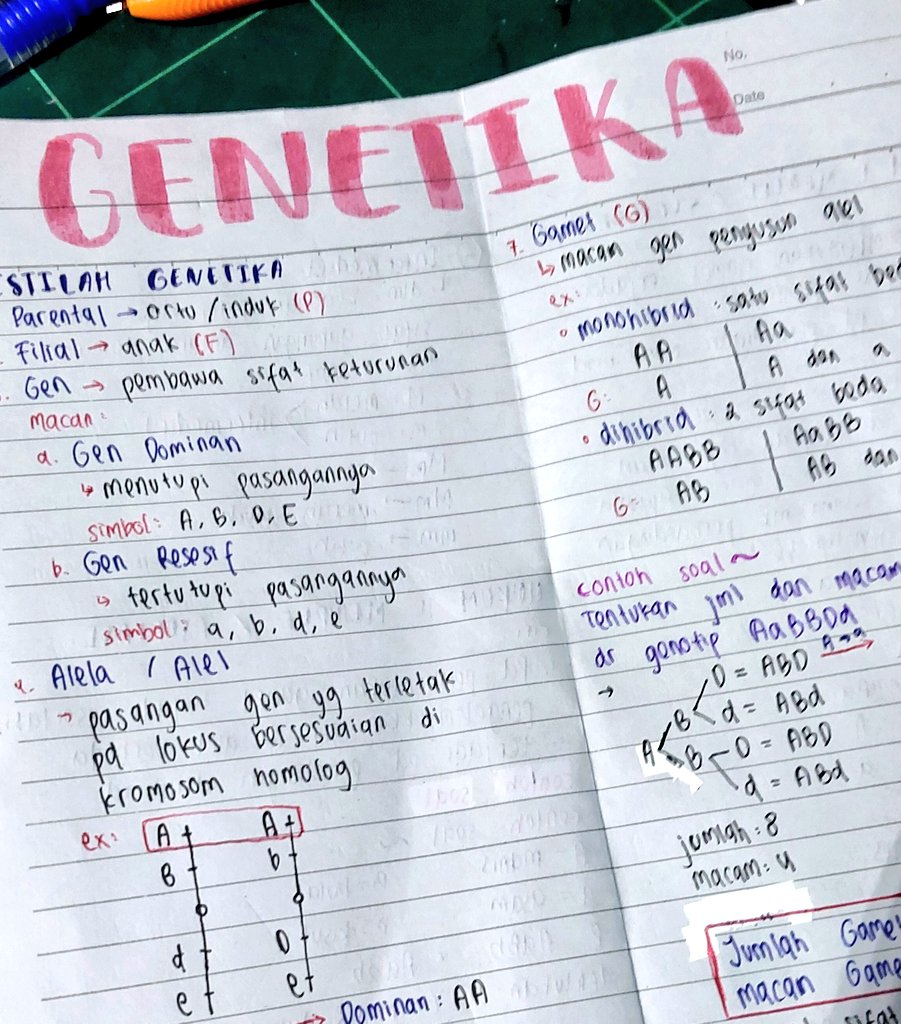 GENETIKA
No.
Date
ISTILAH GENETIKA
Parental → ortu / induk (P)
Filial → anak (F)
Gen → pembawa sifat keturunan
macan:
a. Gen Dominan
↳ menutupi pasangannya
simbol: A, B, D, E
b. Gen Resesif
↳ tertutupi pasangannya
simbol: a, b, d, e
4. Alela / Alel
→ pasangan gen yg terletak
pd lokus bersesuaian di
kromosom homolog
ex: A A
B b
d D
e e
→ Dominan: AA
7. Gamet (G)
↳ macam gen penyusun alel
ex:
• monohibrid : satu sifat
AA | Aa
G: A | A dan a
• dihibrid : 2 sifat beda
AABB | AaBB
G: AB | AB dan
contoh soal~
Tentukan jml dan macam
dr genotip AaBBDd
→ D = ABD A→a
B d = ABd
A B D = ABD
d = ABd
jumlah: 8
macam: 4
Jumlah Game
macan Game
sifat